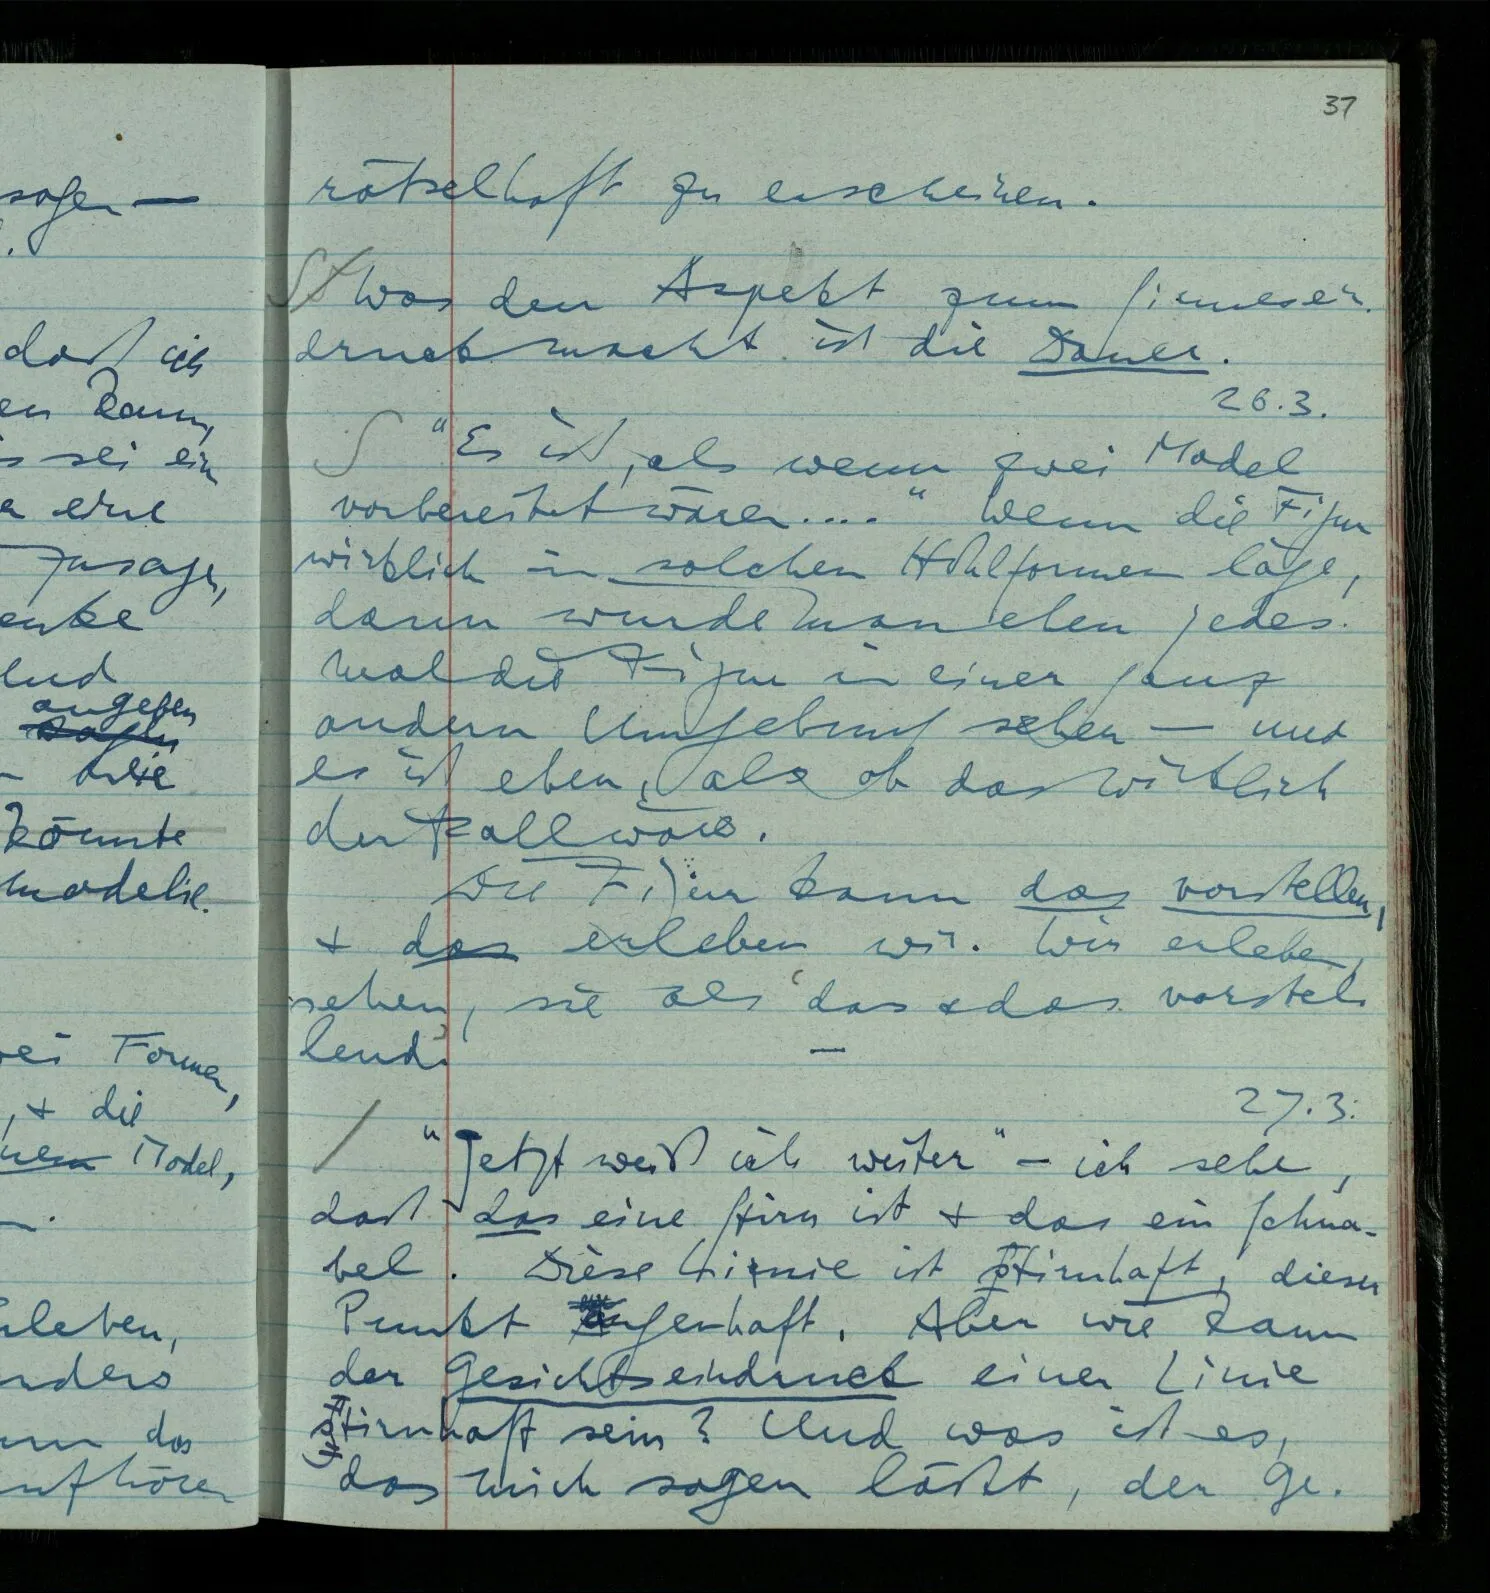 sagen —
.
daß ich
en kann,
s sei ein
er eine
Zusage,
enke
lud
angeben
Linie
könnte
modelie.
wei Formen,
, + die
Model,
—.
rleben,
nders
um das
aufhören
37
rätselhaft zu erscheinen.
S/ Was den Aspekt zum Sinnesein-
druck macht ist die Dauer.
26.3.
S "Es ist, als wenn zwei Model
vorbereitet wären...." Wenn die Figur
wirklich in solchen Hohlformen läge,
dann wurde man eben jedes-
mal die Figur in einer ganz
andern Umgebung sehen — und
es ist eben, als ob das wirklich
der Fall wäre.
Die Figur kann das vorstellen,
+ das erleben wir. Wir erleben,
sehen, sie als 'das + das vorstel-
lend'.
—
27.3.
/ "Jetzt weiß ich weiter" – ich sehe,
daß das eine Stirn ist + das ein Schna-
bel. Diese Linie ist stirnhaft, dieser
Punkt augenhaft. Aber wie kann
der Gesichtseindruck einer Linie
stirnhaft sein? Und was ist es,
das mich sagen läßt, der Ge-